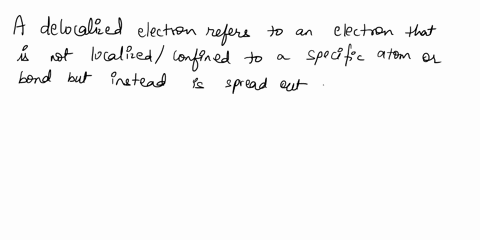 A delocalized electron refers to an electron that
is not localized/confined to a specific atom or
bond but instead is spread out